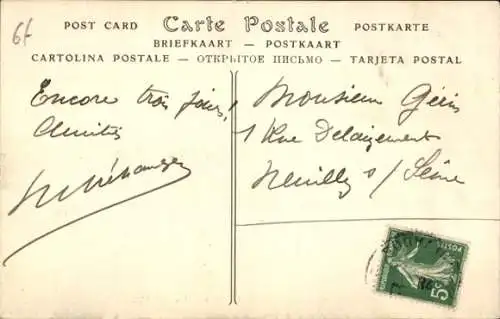 6f
POST CARD Carte Postale POSTKARTE
BRIEFKAART — POSTKAART
CARTOLINA POSTALE — ОТКРЫТОЕ ПИСЬМО — TARJETA POSTAL
Encore trois jours!
Amitiés
Monsieur Géris
1 Rue Delaizement
Neuilly s/ Seine
5c